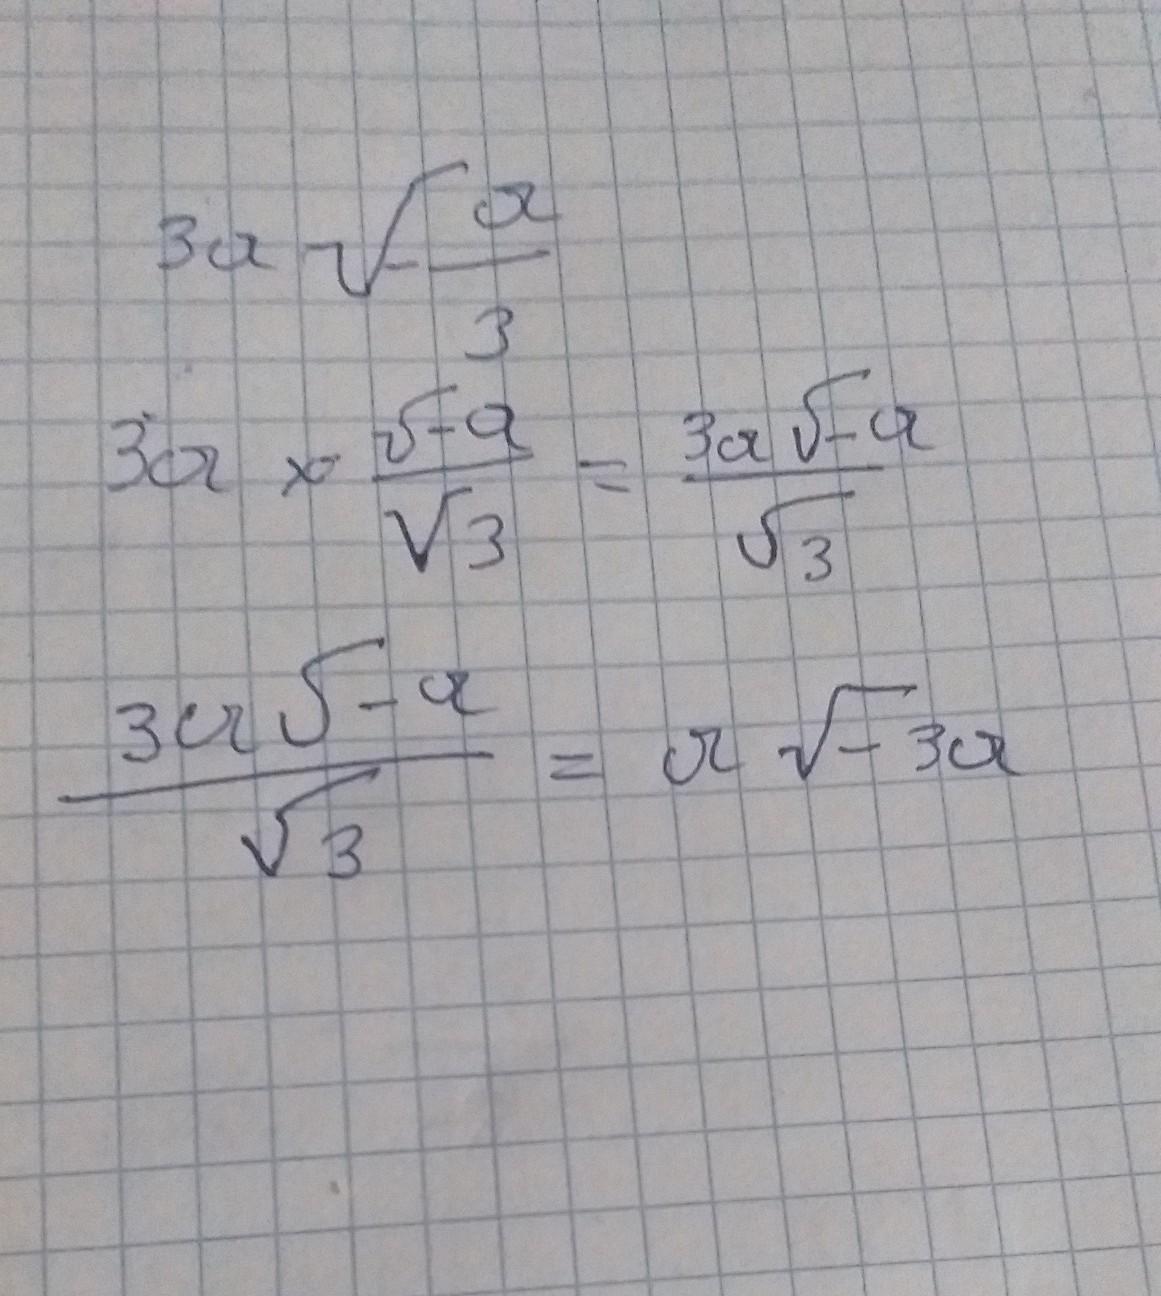 3a √-a/3
3a × √-a/√3 = 3a√-a/√3
3a√-a/√3 = a√-3a